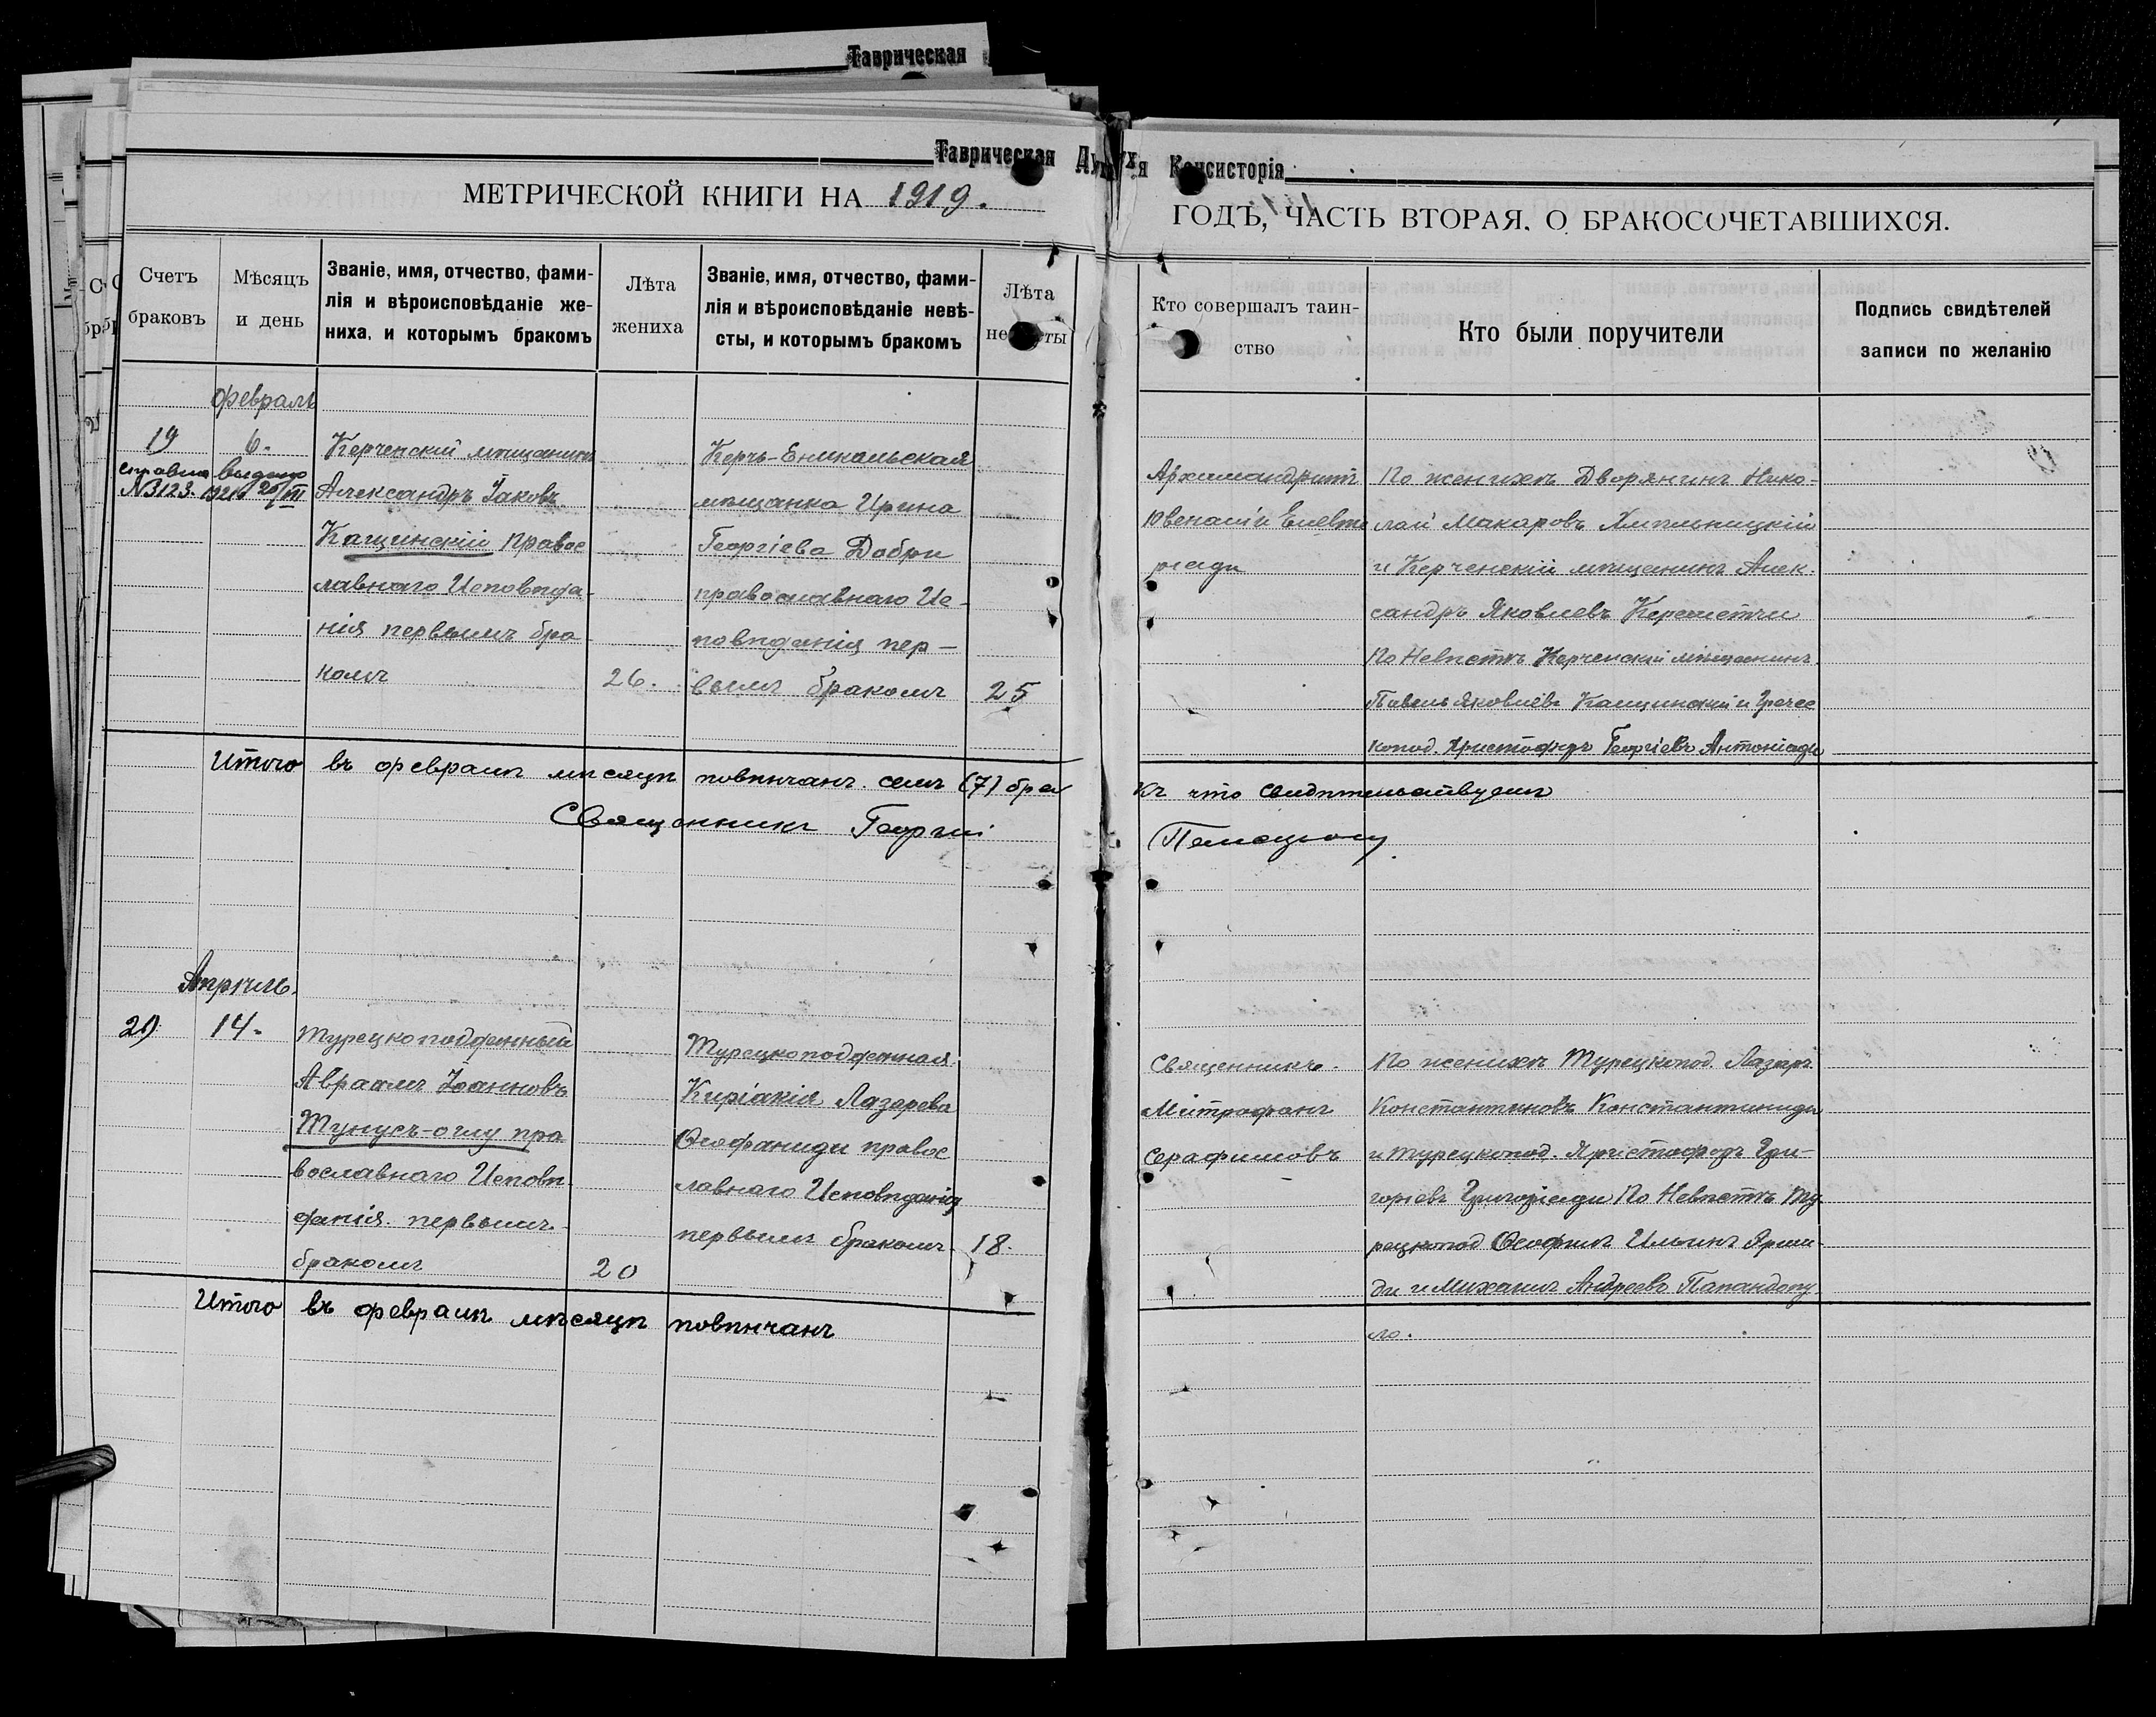 Таврическая
Таврическая Духовная Консисторія
МЕТРИЧЕСКОЙ КНИГИ НА 1919.
ГОДЪ, ЧАСТЬ ВТОРАЯ, О БРАКОСОЧЕТАВШИХСЯ.
Счетъ
браковъ
Мѣсяцъ
и день
Званіе, имя, отчество, фами-
лія и вѣроисповѣданіе же-
ниха, и которымъ бракомъ
Лѣта
жениха
Званіе, имя, отчество, фами-
лія и вѣроисповѣданіе невѣ-
сты, и которымъ бракомъ
Лѣта
невѣсты
Кто совершалъ таин-
ство
Кто были поручители
Подпись свидѣтелей
записи по желанію
февраль
19
6.
справка выдана
№3123. 1921 25/III
Керченскій мѣщанинъ
Александръ Іаковъ
Кащинскій правос
лавнаго Исповѣда-
нія первымъ бра-
комъ
26.
Керчь-Еникальская
мѣщанка Ирина
Георгіева Добри
православнаго Ис-
повѣданія пер-
вымъ бракомъ
25
Архимандритъ
Ювеналій
По женихѣ Дворянинъ Нико-
лай Макаровъ Хмѣльницкій
и Керченскій мѣщанинъ Алек-
сандръ Яковлевъ
По Невѣстѣ Керченскій мѣщанинъ
Павелъ Яковлевъ Кащинскій и Гречес
копод. Христофоръ Георгіевъ Антоніади
Итого въ февралѣ мѣсяцѣ повѣнчанъ семь (7) бра
къ что свидѣтельствуемъ
Священникъ Георгій
Апрѣль.
20
14.
Турецкоподданный
Авраамъ Іоанновъ
Тунусъ-оглу пра
вославнаго Исповѣ
данія первымъ
бракомъ
20
Турецкоподданная
Киріакія Лазарева
Ѳеофаниди правос
лавнаго Исповѣданія
первымъ бракомъ
18.
Священникъ.
Митрофанъ
Серафимовъ
По женихѣ Турецкопод. Лазарь
Константиновъ Константиниди
и Турецкопод. Христофоръ Гри-
горіевъ Григоріади По Невѣстѣ Ту
рецкопод Ѳеофилъ Ильинъ
ди и Михаилъ Андреевъ Папандопу
ло.
Итого въ февралѣ мѣсяцѣ повѣнчанъ